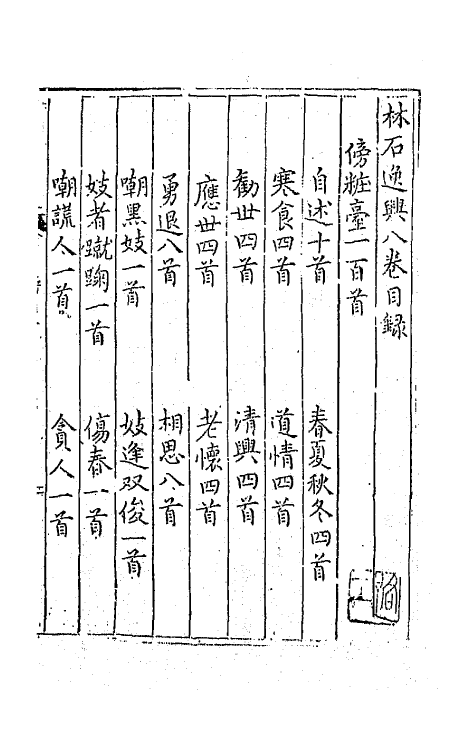 林石逸興八卷目録
傍粧臺一百首
自述十首　春夏秋冬四首
寒食四首　道情四首
勸世四首　清興四首
應世四首　老懷四首
勇退八首　相思八首
嘲黑妓一首　妓逢双俊一首
妓者蹴踘一首　傷春一首
嘲謊人一首　貪人一首